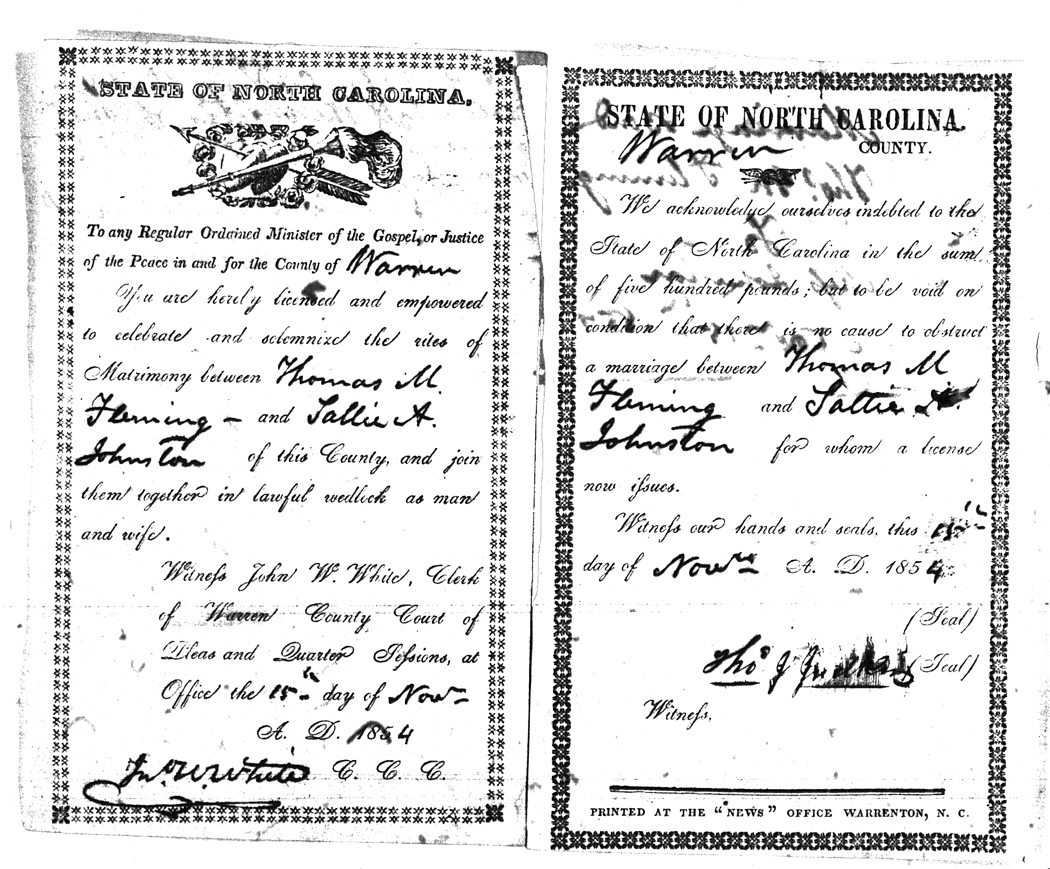 STATE OF NORTH CAROLINA,
To any Regular Ordained Minister of the Gospel, or Justice
of the Peace in and for the County of Warren
You are hereby licensed and empowered
to celebrate and solemnize the rites of
Matrimony between Thomas M
Fleming – and Sallie A.
Johnston of this County, and join
them together in lawful wedlock as man
and wife.
Witness John W. White, Clerk
of Warren County Court of
Pleas and Quarter Sessions, at
Office the 15th day of Novr
A. D. 1854
Jno. W. White C. C. C.
STATE OF NORTH CAROLINA.
Warren COUNTY.
We acknowledge ourselves indebted to the
State of North Carolina in the sum
of five hundred pounds; but to be void on
condition that there is no cause to obstruct
a marriage between Thomas M
Fleming and Sallie A.
Johnston for whom a license
now issues.
Witness our hands and seals, this 15th
day of Novr A. D. 1854
(Seal)
Thos J (Seal)
Witness,
PRINTED AT THE "NEWS" OFFICE WARRENTON, N. C.